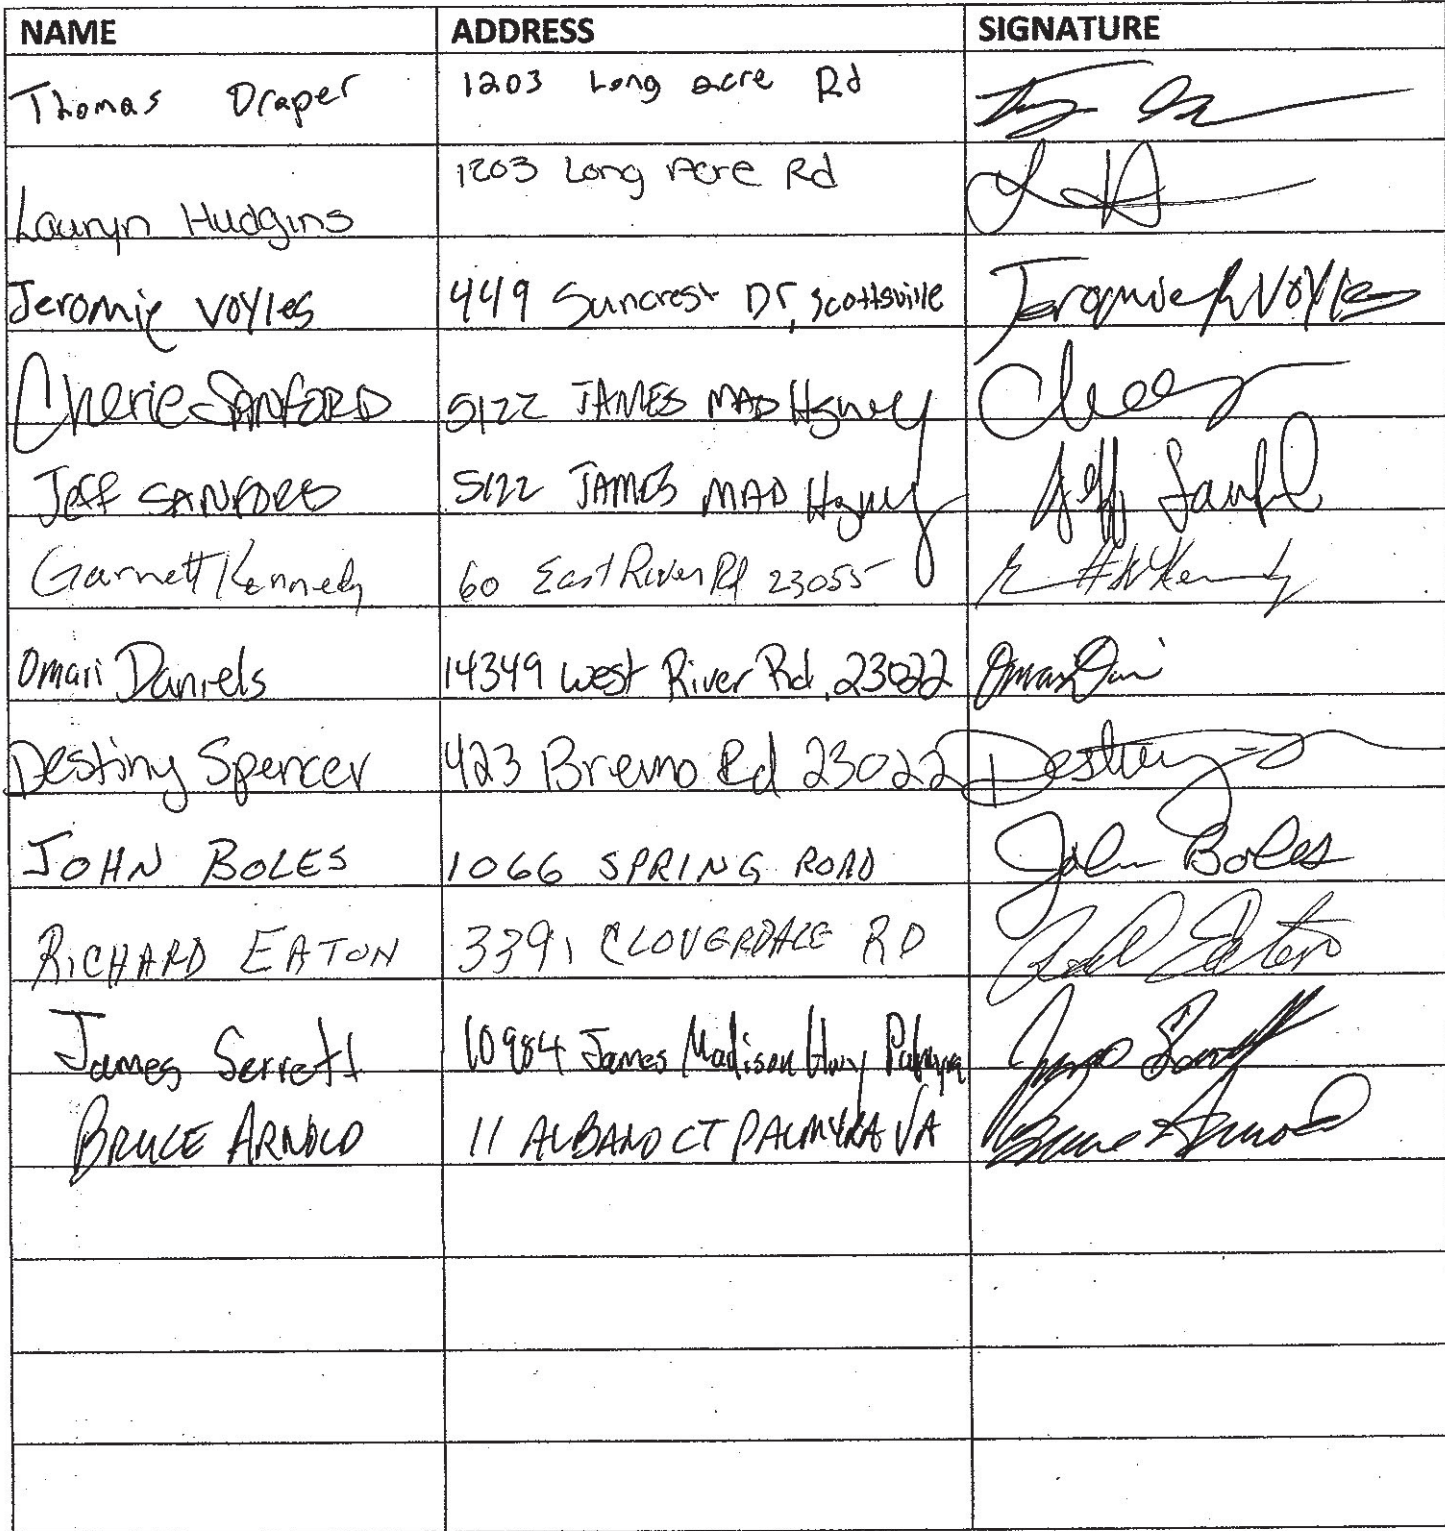 NAME ADDRESS SIGNATURE
Thomas Draper 1203 Long acre Rd
Lauryn Hudgins 1203 Long Acre Rd
Jeromie Voyles 449 Suncrest Dr, Scottsville Jeromie R Voyles
Cherie SANFORD 5122 JAMES MAD Hgwy
Jeff SANFORD 5122 JAMES MAD Hgwy Jeff Sanford
Garnett Kennedy 60 East River Rd 23055 Kennedy
Omari Daniels 14349 West River Rd, 23022 Omari
Destiny Spencer 423 Bremo Rd 23022 Destiny
JOHN BOLES 1066 SPRING ROAD John Boles
RICHARD EATON 3391 CLOVERDALE RD Eaton
James Serrett 10984 James Madison Hwy Palmyra James Serrett
BRUCE ARNOLD 11 ALBANO CT PALMYRA VA Bruce Arnold